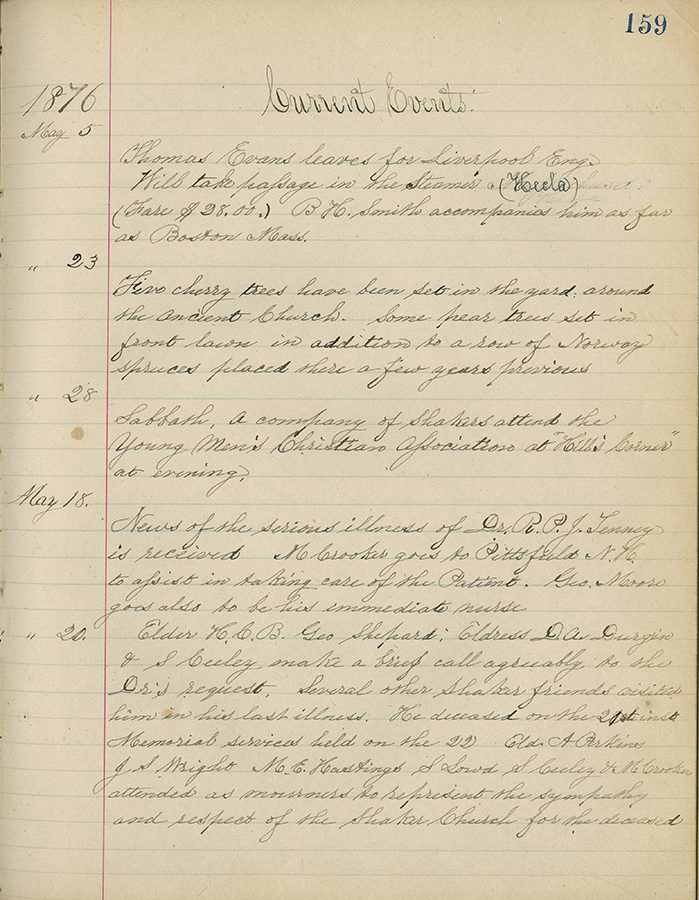 159
Current Events.
1876
May 5
Thomas Evans leaves for Liverpool Eng.
Will take passage in the Steamer (Hecla)
(Fare $28.00.) B H. Smith accompanies him as far
as Boston Mass.
" 23
Five cherry trees have been set in the yard around
the Ancient Church. Some pear trees set in
front lawn in addition to a row of Norway
spruces placed there a few years previous
" 28
Sabbath, A company of Shakers attend the
Young Men's Christian Association at "Hill's Corner"
at evening.
May 18.
News of the serious illness of Dr. R. P. J. Tenney
is received M Crooker goes to Pittsfield N. H.
to assist in taking care of the Patient. Geo. Moore
goes also to be his immediate nurse
" 20. Elder H. C. B. Geo Shepard; Eldress D. A. Durgin
& S Ceeley make a brief call agreuably to the
Dr's request. Several other Shaker friends visited
him in his last illness. He deceased on the 21st inst
Memorial services held on the 22 Eld. A Perkins
J S Wright M. E. Hastings S Lowd S Ceeley & M Crooker
attended as mourners to represent the sympathy
and respect of the Shaker Church for the deceased